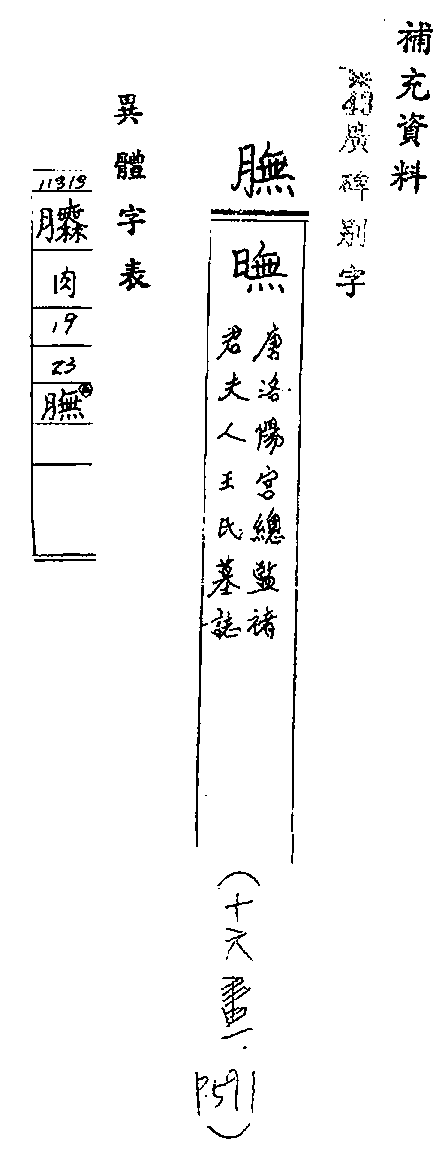 補充資料
※43廣碑別字
膴
𣉢
唐洛陽宮總監褚
君夫人王氏墓誌
(十六畫、
P.591)
異體字表
11313
肉
19
23
膴